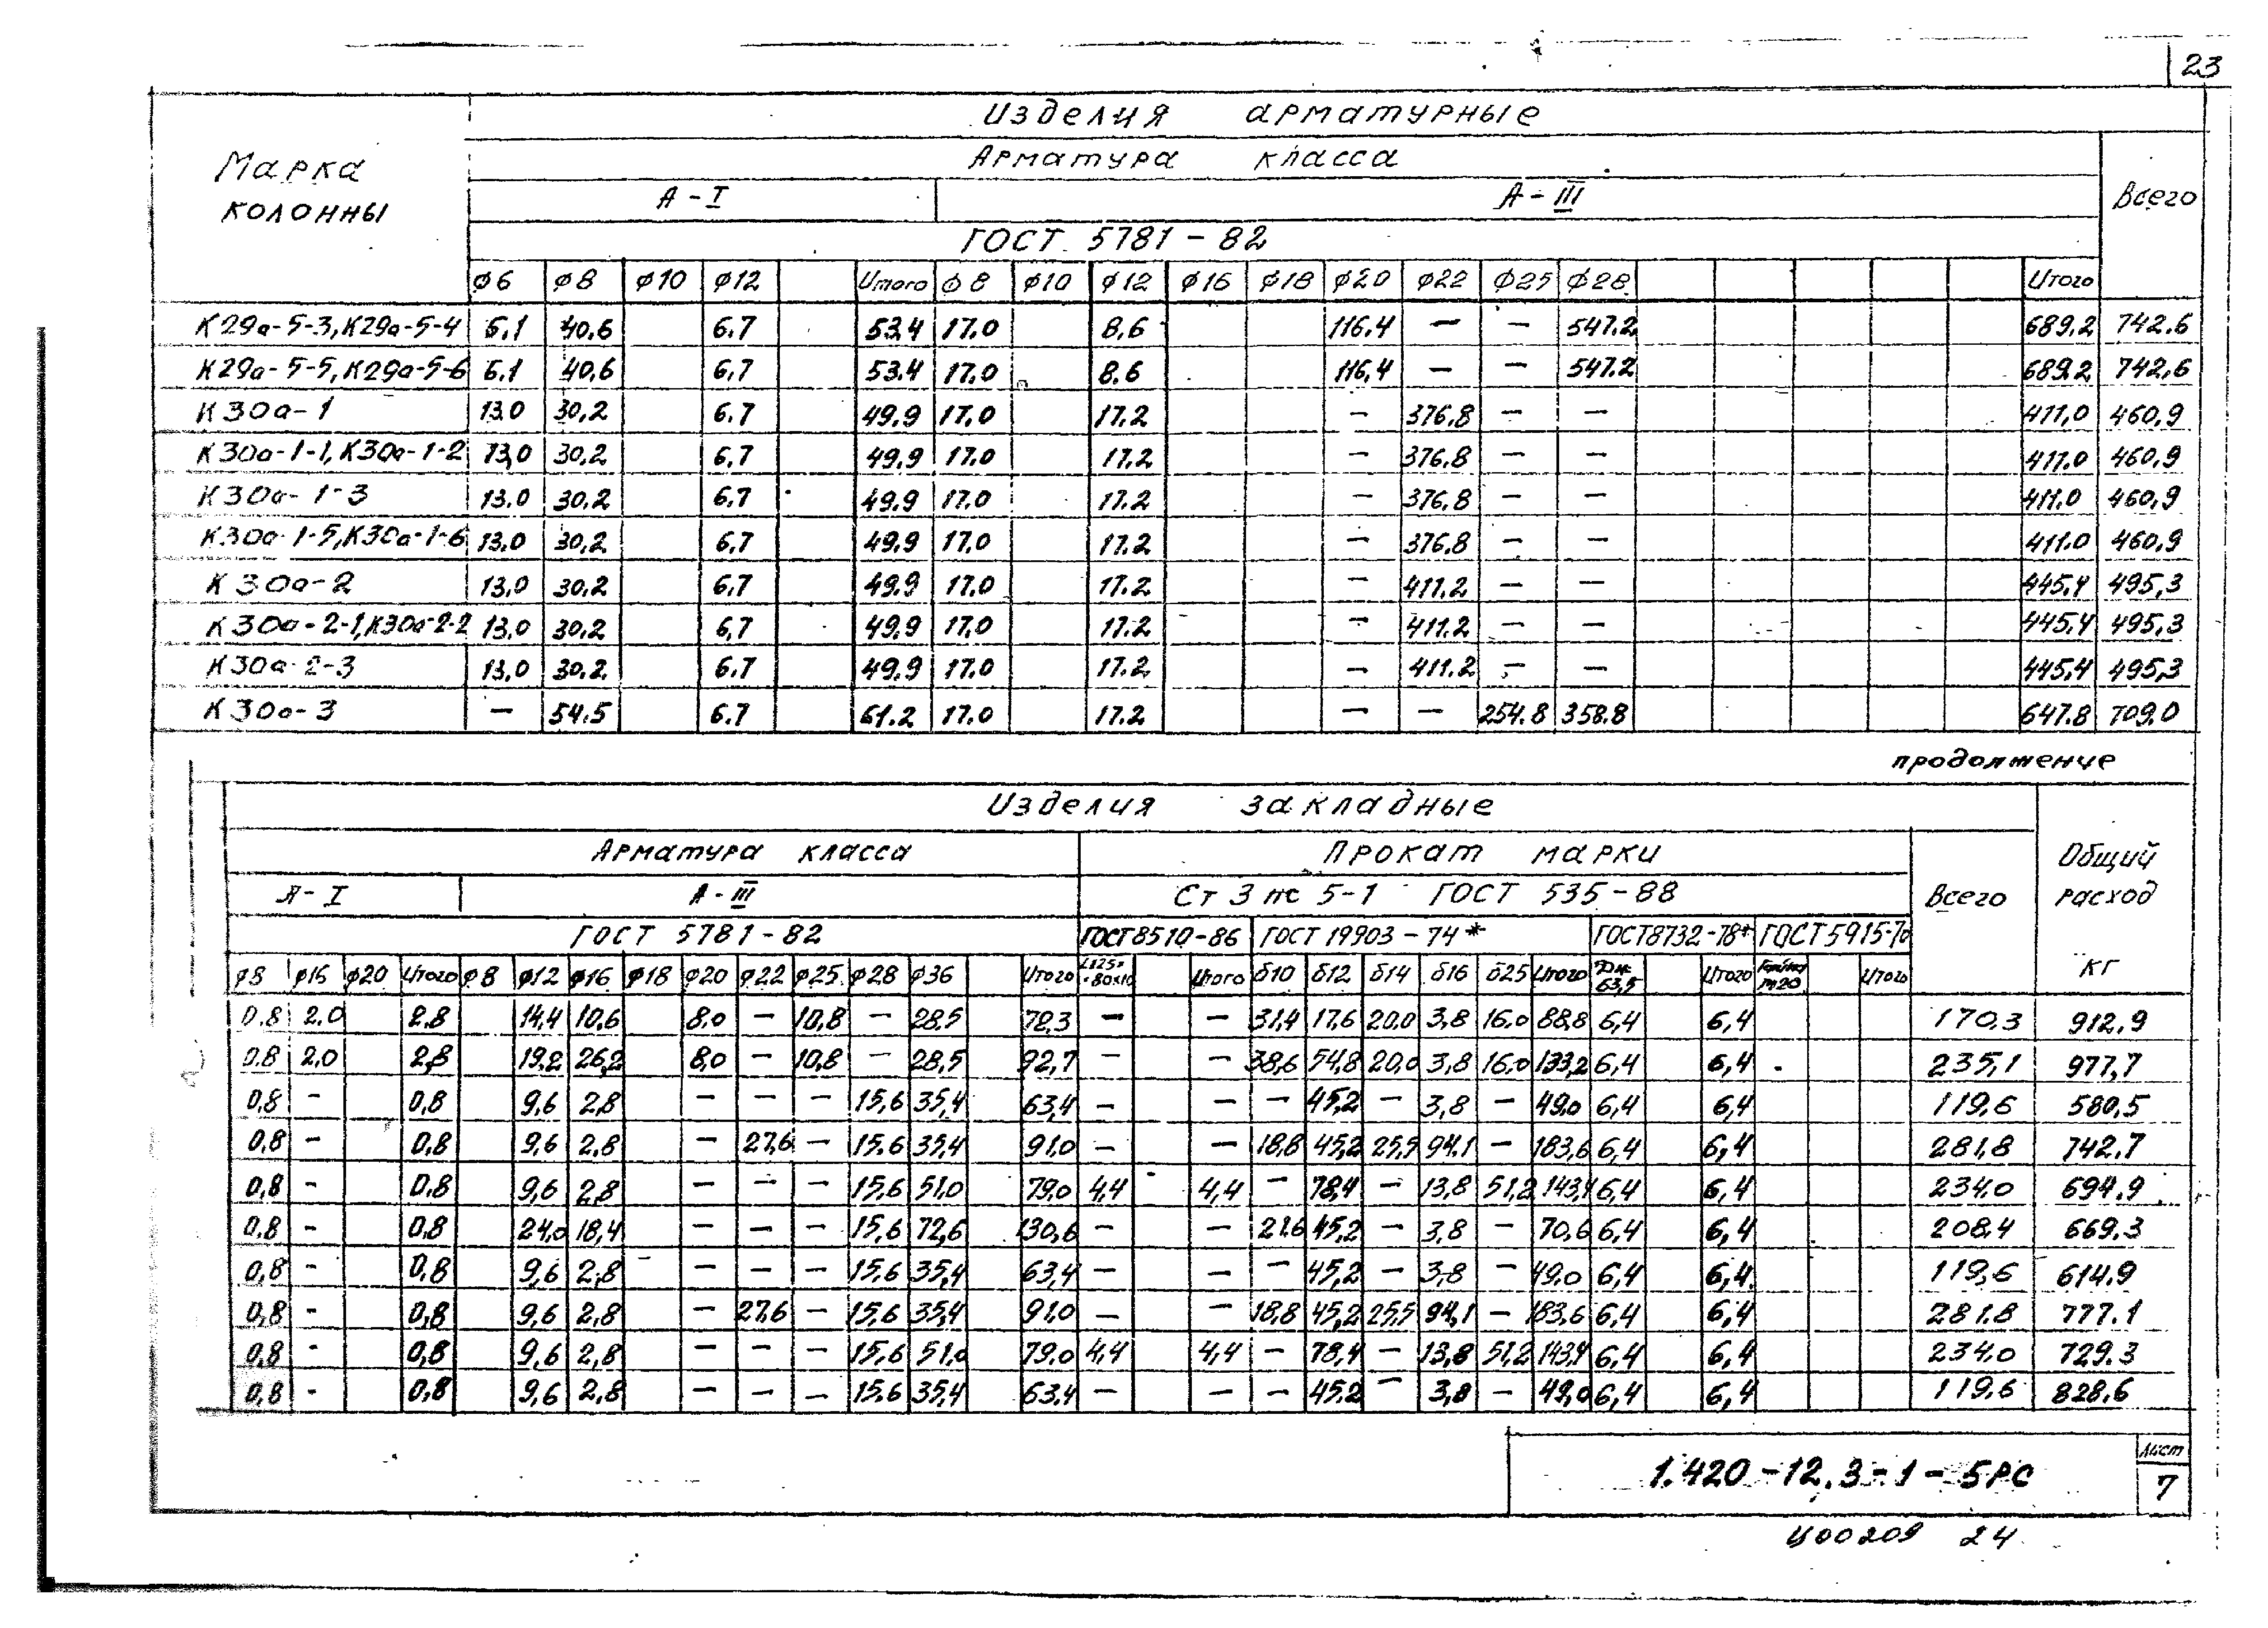 23
Изделия арматурные
Марка колонны
Арматура класса
Всего
А-I А-III
ГОСТ 5781-82
ф6 ф8 ф10 ф12 Итого ф8 ф10 ф12 ф16 ф18 ф20 ф22 ф25 ф28 Итого
К29а-5-3, К29а-5-4 6.1 40,6 6.7 53.4 17.0 8.6 116.4 — — 547.2 689.2 742.6
К29а-5-5, К29а-5-6 6.1 40,6 6.7 53.4 17.0 8.6 116,4 — — 547.2 689.2 742,6
К30а-1 13.0 30,2 6.7 49.9 17.0 17.2 — 376.8 — — 411,0 460,9
К30а-1-1, К30а-1-2 13,0 30,2 6.7 49,9 17.0 17.2 — 376.8 — — 411.0 460,9
К30а-1-3 13.0 30,2 6.7 49,9 17.0 17.2 — 376,8 — — 411,0 460,9
К30а-1-5, К30а-1-6 13.0 30,2 6,7 49,9 17.0 17.2 — 376,8 — — 411.0 460,9
К30а-2 13,0 30,2 6.7 49.9 17.0 17.2 — 411.2 — — 445,4 495,3
К30а-2-1, К30а-2-2 13,0 30,2 6,7 49.9 17.0 17.2 — 411.2 — — 445,4 495,3
К30а-2-3 13,0 30.2 6.7 49.9 17.0 17.2 — 411.2 — — 445,4 495,3
К30а-3 — 54.5 6.7 61.2 17.0 17.2 — — 254.8 358.8 647.8 709.0
продолжение
Изделия закладные
Арматура класса Прокат марки
Общий расход кг
А-I А-III Ст 3 пс 5-1 ГОСТ 535-88 Всего
ГОСТ 5781-82 ГОСТ 8510-86 ГОСТ 19903-74* ГОСТ 8732-78* ГОСТ 5915-70
ф8 ф16 ф20 Итого ф8 ф12 ф16 ф18 ф20 ф22 ф25 ф28 ф36 Итого L125××80×10 Итого δ10 δ12 δ14 δ16 δ25 Итого Дн. 63,5 Итого Гайка м20 Итого
0.8 2.0 2.8 14,4 10,6 8.0 — 10,8 — 28.5 72,3 — — 31,4 17,6 20.0 3,8 16.0 88,8 6,4 6,4 170,3 912,9
0.8 2,0 2,8 19,2 26,2 8,0 — 10,8 — 28,5 92,7 — — 38,6 54,8 20,0 3,8 16.0 133,2 6,4 6,4 235,1 977,7
0,8 — 0,8 9,6 2,8 — — — 15,6 35,4 63,4 — — — 45,2 — 3,8 — 49,0 6,4 6,4 119,6 580,5
0,8 — 0,8 9,6 2,8 — 27,6 — 15,6 35,4 91,0 — — 18,8 45,2 25,5 94.1 — 183,6 6,4 6,4 281,8 742.7
0,8 — 0,8 9,6 2,8 — — — 15,6 51,0 79,0 4,4 4,4 — 78,4 — 13,8 51,2 143,4 6,4 6,4 234,0 694.9
0,8 — 0,8 24,0 18,4 — — — 15,6 72,6 130,6 — — 21,6 45,2 — 3,8 — 70,6 6,4 6,4 208,4 669.3
0,8 — 0,8 9,6 2,8 — — — 15,6 35,4 63,4 — — — 45,2 — 3,8 — 49,0 6,4 6,4 119,6 614.9
0,8 — 0,8 9,6 2,8 — 27,6 — 15,6 35,4 91,0 — — 18,8 45,2 25,5 94,1 — 183,6 6,4 6,4 281.8 777.1
0,8 — 0,8 9,6 2,8 — — — 15,6 51,0 79.0 4,4 4,4 — 78,4 — 13,8 51,2 143,4 6,4 6,4 234,0 729.3
0,8 — 0,8 9,6 2,8 — — — 15.6 35,4 63,4 — — — 45.2 — 3,8 — 49,0 6,4 6,4 119,6 828,6
1.420-12.3-1-5РС
Лист
7
Ц00209 24